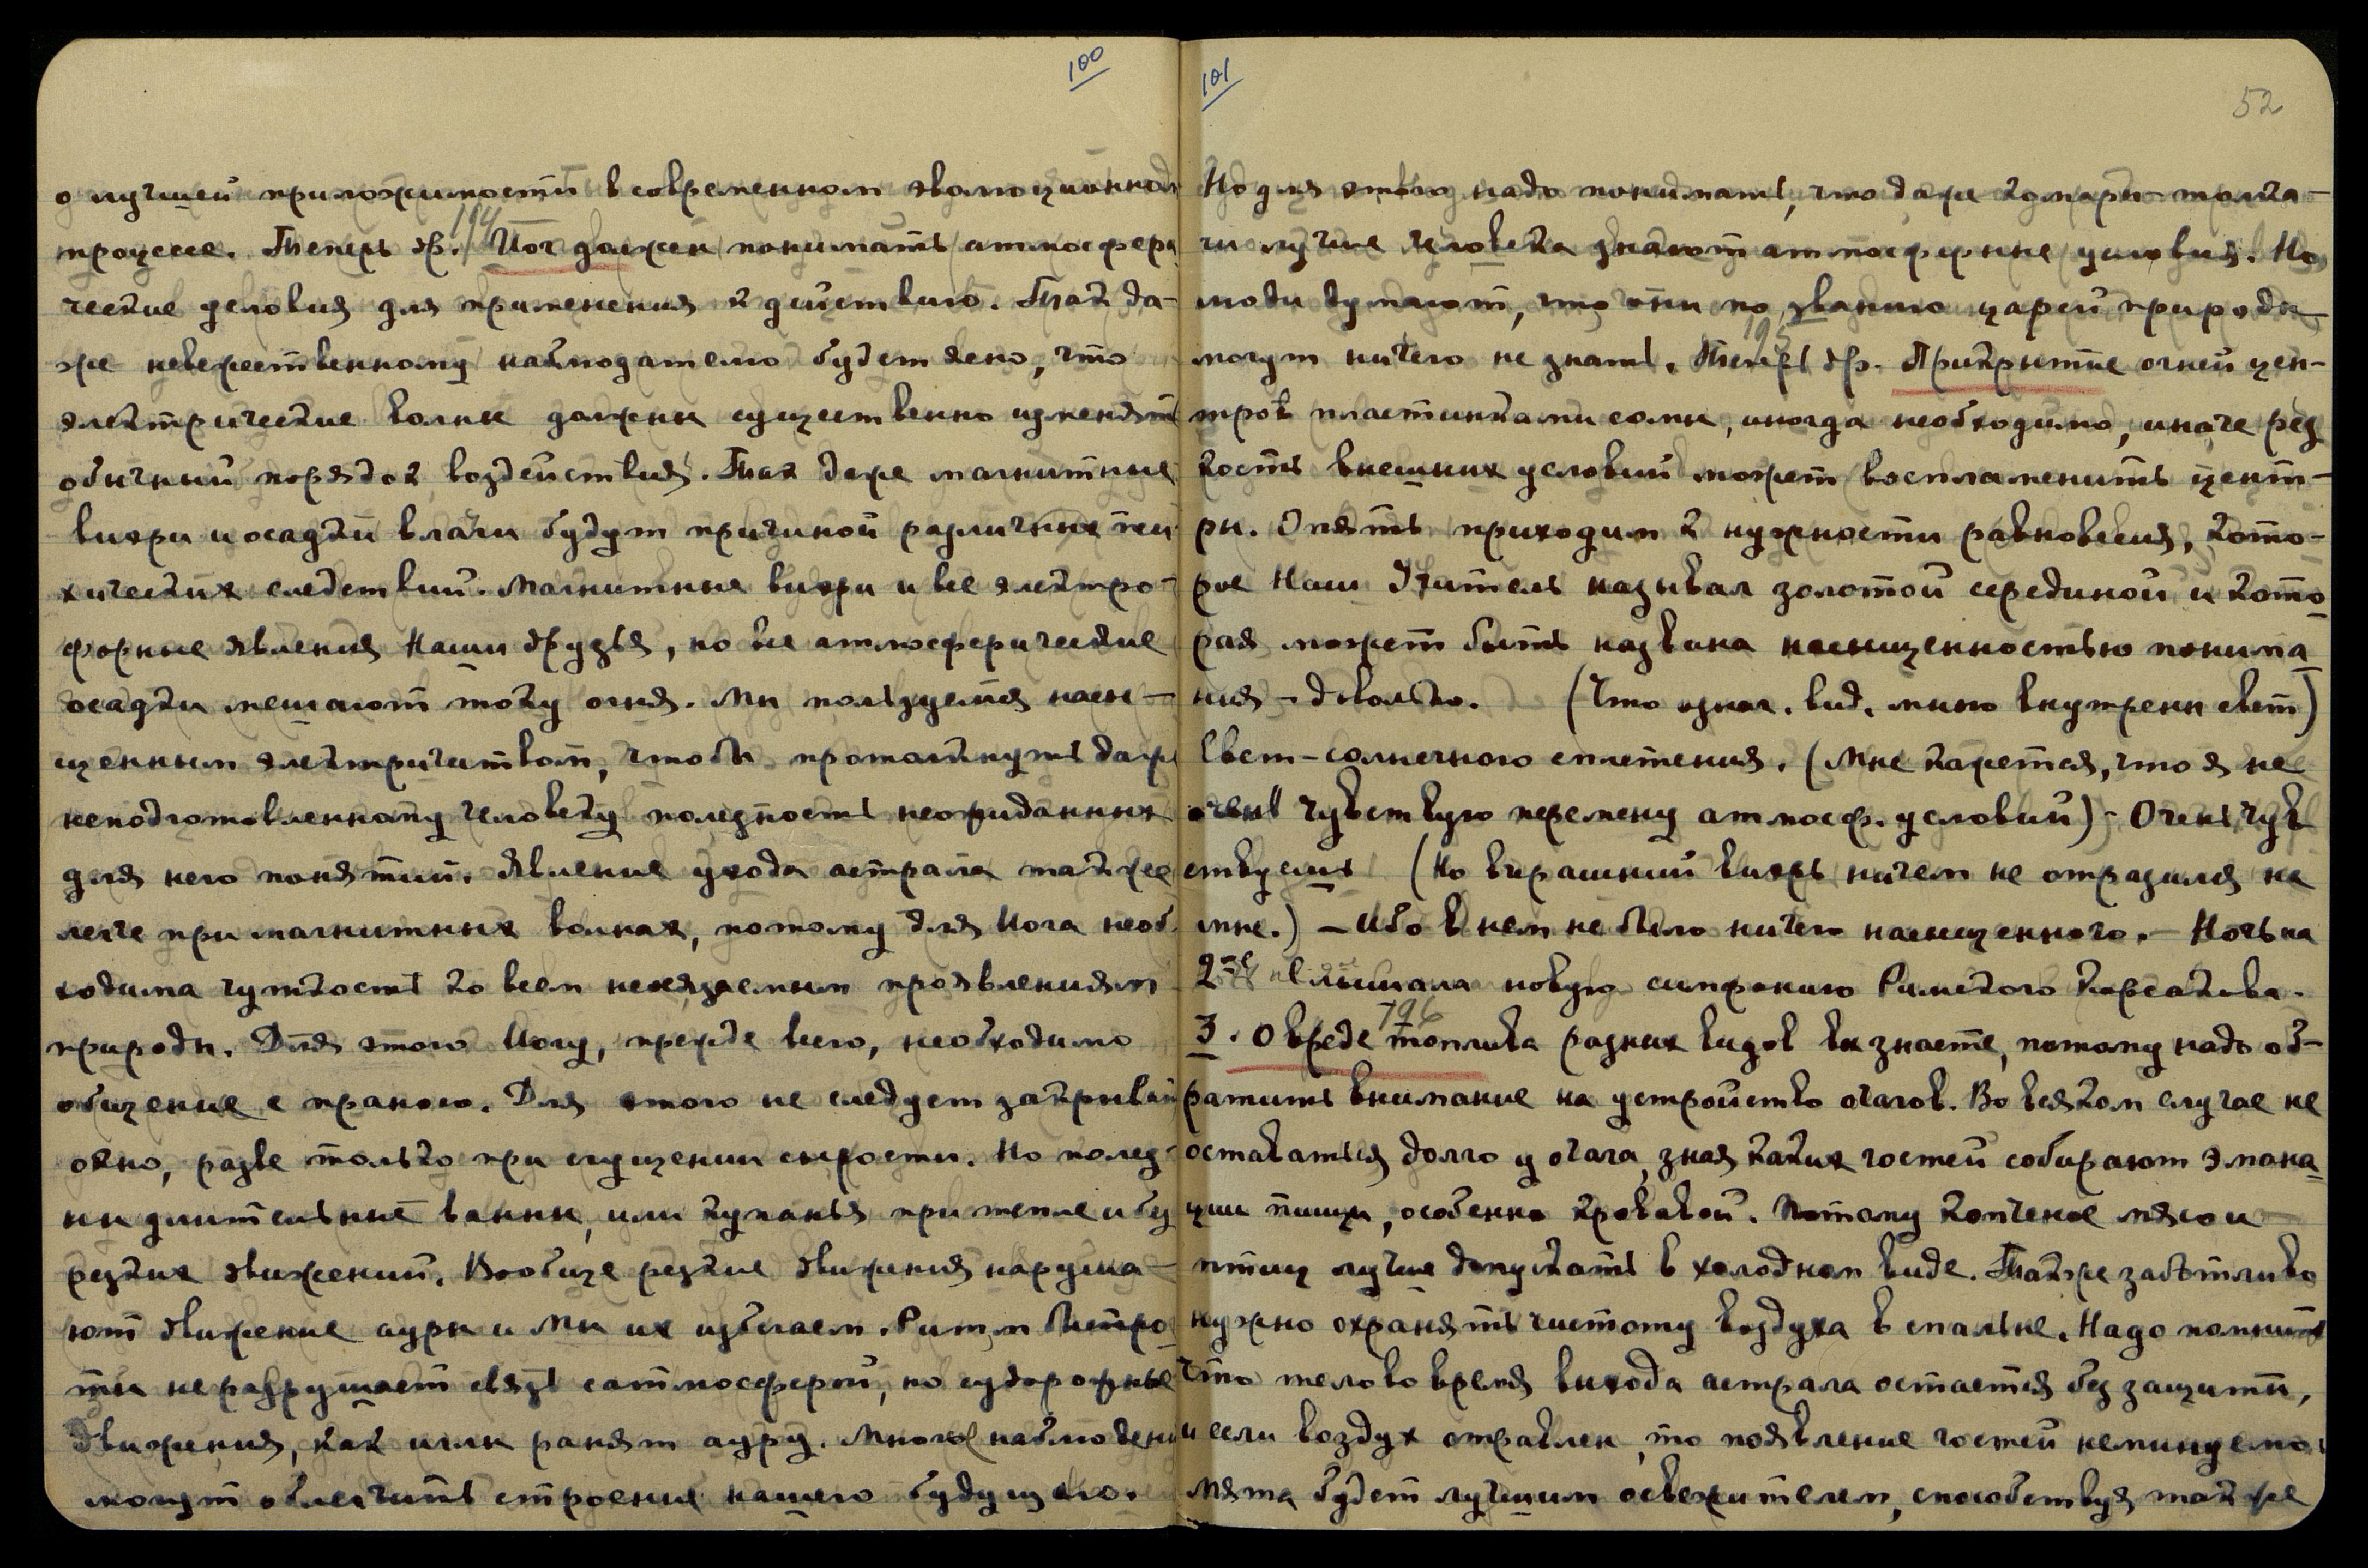 100
о лучшей приложимости в современном эволюционном
процессе. Теперь др. 194 Йог должен понимать атмосфери
ческие условия для применения к действию. Так да-
же невежественному наблюдателю будет ясно, что
электрические волны должны существенно изменять
обычный порядок воздействия. Так даже магнитные
вихри и осадки влаги будут причиной различных пси
хических следствий. Магнитные вихри и все электро-
форные явления Наши друзья, но все атмосферические
осадки мешают току огня. Мы пользуемся насы-
щенным электричеством, чтобы протолкнуть даже
неподготовленному человеку полезность неожиданных
для него понятий. Явление ухода астрала также
легче при магнитных волнах, потому для Йога необ
ходима чуткость ко всем неосязаемым проявлениям
природы. Для этого Йогу, прежде всего, необходимо
общение с праною. Для этого не следует закрывать
окно, разве только при сгущении сырости. Но полез-
ны длительные ванны, или купанья при тепле и без
резких движений. Вообще резкие движения наруша-
ют движение ауры и Мы их избегаем. Ритм быстро
ты не разрушает связь с атмосферой, но судорожные
движения, как иглы ранят ауру. Много наблюдений
могут облегчить строение нашего будущего.
101
52
Но для этого надо понимать, что даже комары-толка-
чи лучше человека знают атмосферные условия. Но
люди думают, что они по званию царей природы
могут ничего не знать. Теперь др. 195 Прикрытие огней цен-
тров пластинками соды, иногда необходимо, иначе рез
кость внешних условий может воспламенить цент-
ры. Опять приходим к нужности равновесия, кото-
рое Наш Учитель называл золотой серединой и кото
рая может быть названа насыщенностью понима
ния – довольно. (Что означ. вид. мною внутренн свет)
Свет – солнечного сплетения. (Мне кажется, что я не
очень чувствую перемену атмосф. условий) – Очень чув
ствуешь (Но вчерашний вихрь ничем не отразился на
мне.) – Ибо в нем не было ничего насыщенного. – Ночь на
2ое слышала новую симфонию Римского Корсакова.
3. 196 О вреде топлива разных видов вы знаете, потому надо об-
ратить внимание на устройство очагов. Во всяком случае не
оставаться долго у очага, зная каких гостей собирают эмана
ции пищи, особенно кровавой. Потому копченое мясо и
птицу лучше допускать в холодном виде. Также заботливо
нужно охранять чистоту воздуха в спальне. Надо помнить
что тело во время выхода астрала остается без защиты,
и если воздух отравлен, то появление гостей неминуемо.
Мята будет лучшим освежителем, способствуя также